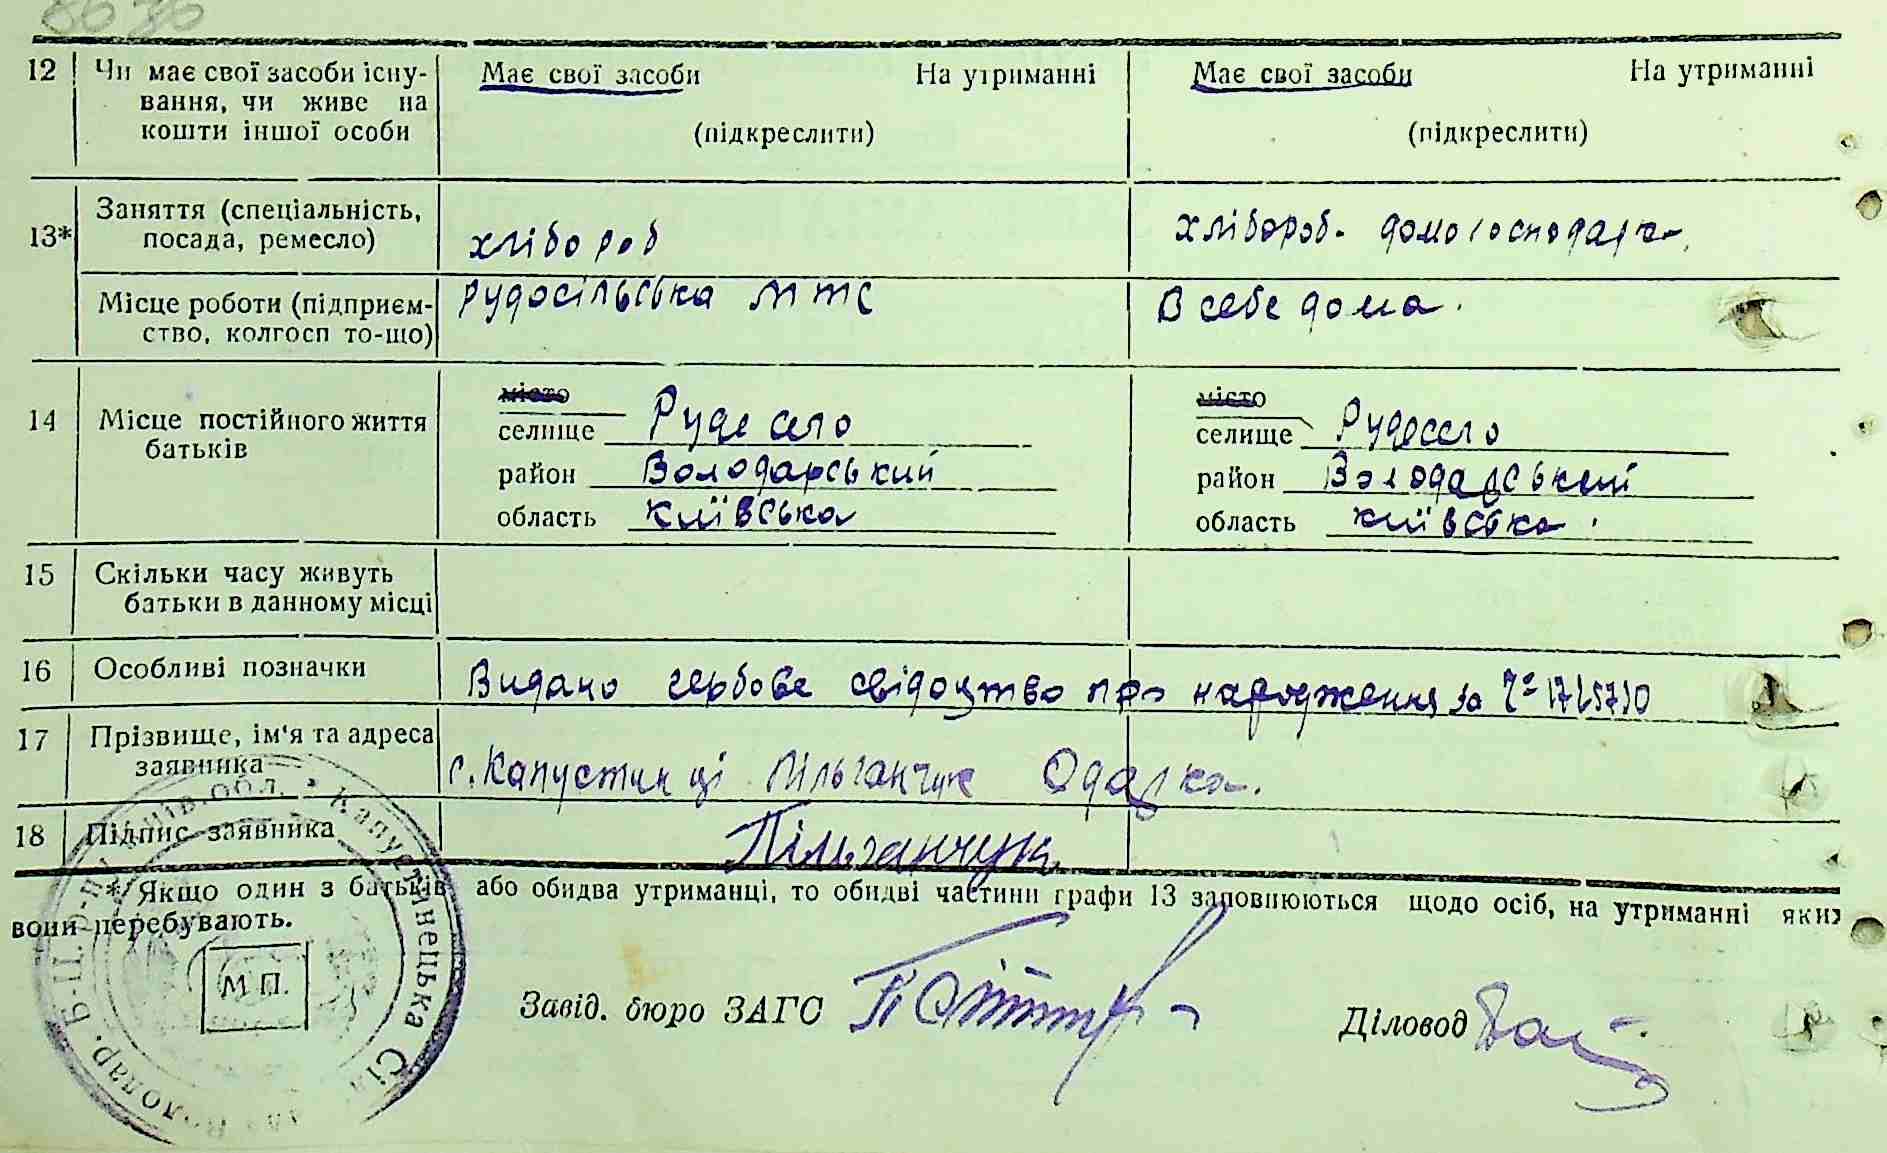 12 Чи має свої засоби існу-
вання, чи живе на
кошти іншої особи
Має свої засоби На утриманні
(підкреслити)
Має свої засоби На утриманні
(підкреслити)
13* Заняття (спеціальність,
посада, ремесло)
хлібороб
хлібороб- домогосподарка.
Місце роботи (підприєм-
ство, колгосп то-що)
Рудосільська МТС
В себе дома.
14 Місце постійного життя
батьків
місто
селище Руде село
район Володарський
область Київська
місто
селище Рудесело
район Володарський
область Київська.
15 Скільки часу живуть
батьки в данному місці
16 Особливі позначки
Видано гербове свідоцтво про народження за
17 Прізвище, ім'я та адреса
заявника
с. Капустинці Пільганчук Одарка.
18 Підпис заявника
Пільганчук
*/ Якщо один з батьків або обидва утриманці, то обидві частини графи 13 заповнюються щодо осіб, на утриманні яких
вони перебувають.
М П.
Капустинецька Сіл
Б-Ц. О-ри Київ. обл.
Володар.
Завід. бюро ЗАГС
Діловод